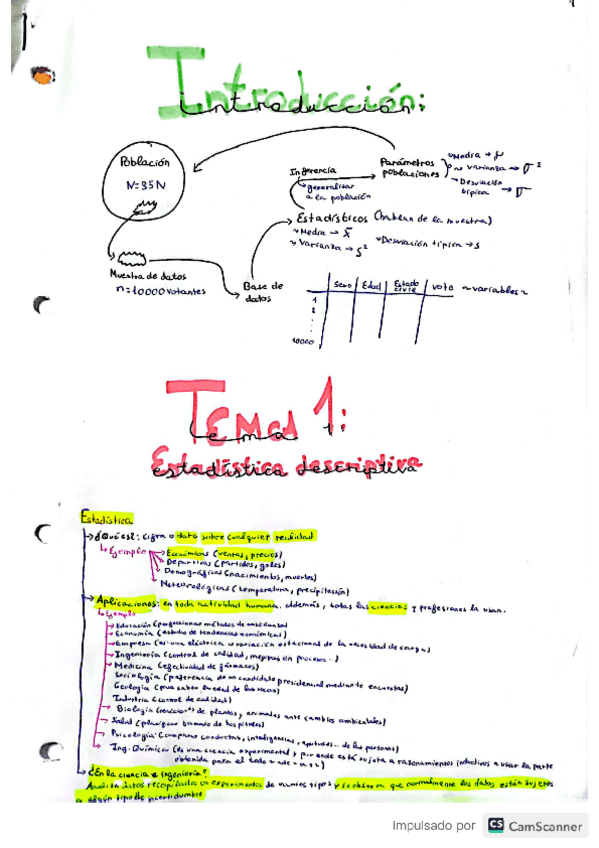 Introducción:
Población
N=35N
Parámetros
poblaciones
~Media → μ
~ varianza → σ²
~Desviación
típica → σ
Inferencia
generalizar
a la población
Estadísticos (hablan de la muestra)
~ Media → x̄
~ Varianza → s²
~Desviación típica → s
Muestra de datos
n=10000 votantes
Base de
datos
Sexo Edad Estado civil voto ~variables~
1
2
10000
Tema 1:
Estadística descriptiva
Estadística
¿Qué es?: cifra o dato sobre cualquier realidad
Ejemplo → Económicos (ventas, precios)
Deportivas (Partidos, goles)
Demográficas (nacimientos, muertes)
Meteorológicas (temperatura, precipitación)
Aplicaciones: en toda actividad humana. Además, todas las ciencias y profesiones la usan.
Ejemplo
Educación (perfeccionar métodos de enseñanza)
Economía (estudio de tendencias económicas)
Empresa ( eléctrica variación estacional de la necesidad de energía)
Ingeniería (control de calidad, mejoras en procesos..)
Medicina (efectividad de fármacos)
Sociología (preferencia de un candidato presidencial mediante encuestas)
Geología (para saber la edad de las rocas)
Industria (control de calidad)
Biología (reacciones de plantas y animales ante cambios ambientales)
Salud (planificar de hospitales)
Psicología: Comparar conductas, inteligencias, aptitudes... de las personas)
Ing. Química (es una ciencia experimental y por ende está sujeta a razonamientos inductivos a usar la parte
obtenida para el todo)
¿En la ciencia e ingeniería?
Analiza datos recopilados en experimentos de varios tipos y se observa que normalmente los datos están sujetos
a algún tipo de incertidumbre
Impulsado por CS CamScanner